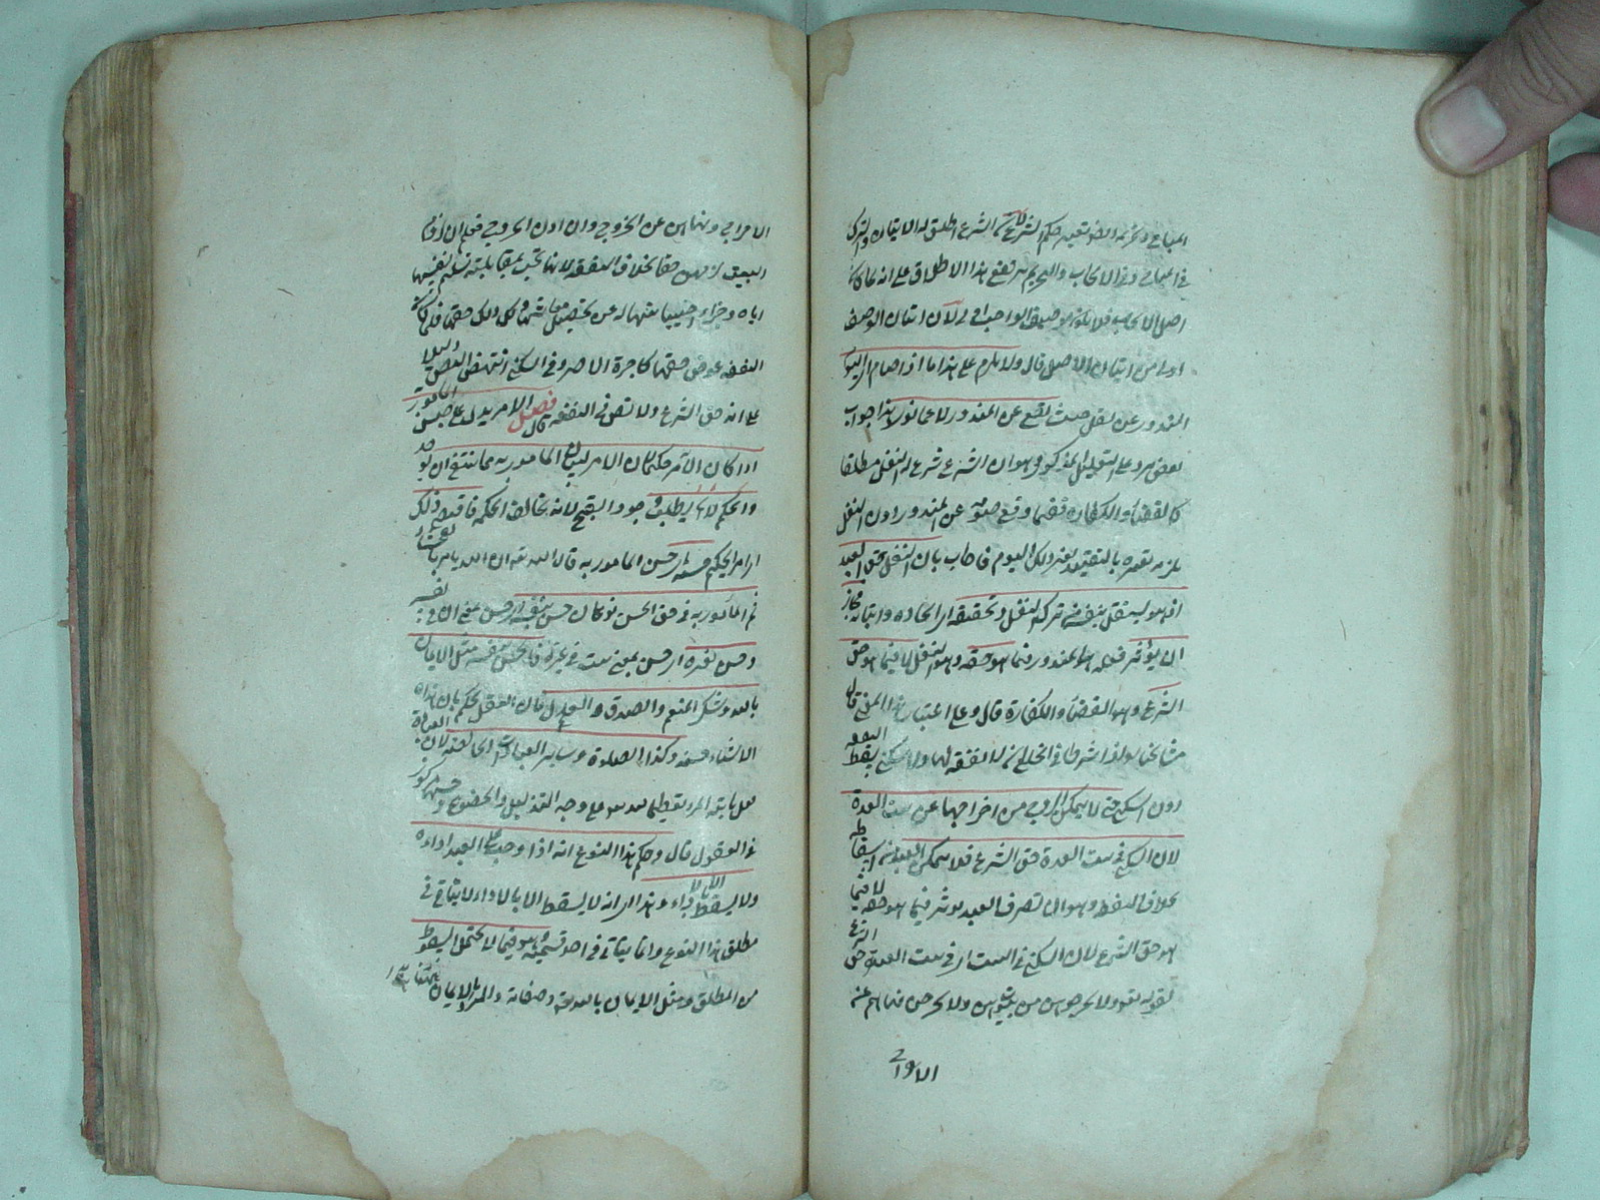 المباح وتحريمه اذ فيه تغيير حكم الشرع لان الشرع اطلق له الاتيان والترك
في المباح وفي الايجاب والتحريم رفع هذا الاطلاق على انه
اصل الايجاب فلا يكون وصف الواجب لان اتيان الوصف
اولى من اتيان الاصل قال ولا يلزم على هذا ما اذا صام
المنذور عن نفل حيث يقع عن المنذور لا عما نوى هذا جواب
نقض يرد على التعليل المذكور وهو ان الشرع شرع له النفل مطلقا
كالقضاء والكفارة فلما وقع صومه عن المنذور دون النفل
ذلك اليوم فاجاب بان النفل حق العبد
اذ هو بنفسه في تركه النفل وتحقيقه اي ايجاده واتيانه فجاز
ان يؤثر فعله هو المنذور فيما هو حقه وهو النفل لا فيما هو حق
الشرع وهو القضاء والكفارة قال وعلى اعتبار هذا المعنى قال
مشايخنا لو شرطا في الخلع ان لا نفقة لها ولا سكنى يسقط النفقة
دون السكنى حتى لا يتمكن الزوج من اخراجها عن بيت العدة
لان السكنى في بيت العدة حق الشرع فلا يتمكن العبد من اسقاطه
بخلاف النفقة وهو ان تصرف العبد يؤثر فيما هو حقه لا فيما
هو حق الشرع لان السكنى في البيت اي في بيت العدة حق الشرع
لقوله تعالى ولا تخرجوهن من بيوتهن ولا يخرجن نهاهم عن
الاخراج
الاخراج ونهاهن عن الخروج وان اذن الزوج فعلم ان
البيت حقا بخلاف النفقة لانها تجب بمقابلة تسليم نفسها
اياه وجزاء احتباسها له عن تحصيل معاشها وكل ذلك حقها فكانت
النفقة عوض حقها كاجرة الاجير وفي السكنى انتهض النص دليلا
على انه حق الشرع ولا نص في النفقة قال فصل الامر يدل على حسن المأمور به
اذا كان الآمر حكيما لان الامر لبيان ان المأمور به مما ينبغي ان يوجد
والحكيم لا يطلب وجود القبيح لانه يخالف الحكمة فاقتضى ذلك
اي امر الحكيم حسنه اي حسن المأمور به قال الله تعالى ان الله لا يأمر بالفحشاء
ثم المأمور به في حق الحسن نوعان حسن بنفسه اي حسن لمعنى في نفسه
وحسن لغيره اي حسن لمعنى ثبت في غيره فالحسن بنفسه مثل الايمان
بالله وشكر المنعم والصدق والعدل فان العقل يحكم بان هذه
الاشياء حسنة وكذا الصلوة وسائر العبادات الخالصة لان العبادة
فعل يأتيه المرء تعظيما لله على وجه التذلل والخضوع وحسنها مركوز
في العقول قال وحكم هذا النوع انه اذا وجب على العبد اداءه
ولا يسقط الا بالاداء وهذا اي انه لا يسقط الا بالاداء لا يتأتى في
مطلق هذا النوع وانما يتأتى في احد قسميه وهو فيما لا يحتمل السقوط
من المطلق ومثل الايمان بالله تعالى وصفاته والمراد بالايمان